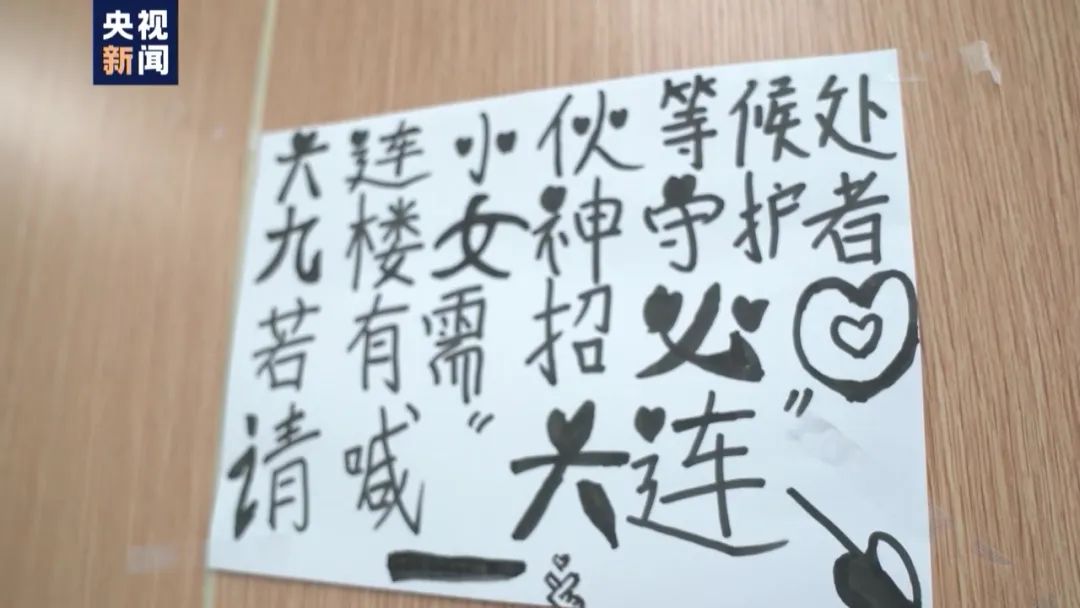 央视
新闻
大连小伙等候处
九楼女神守护者
若有需招必回
请喊“大连”